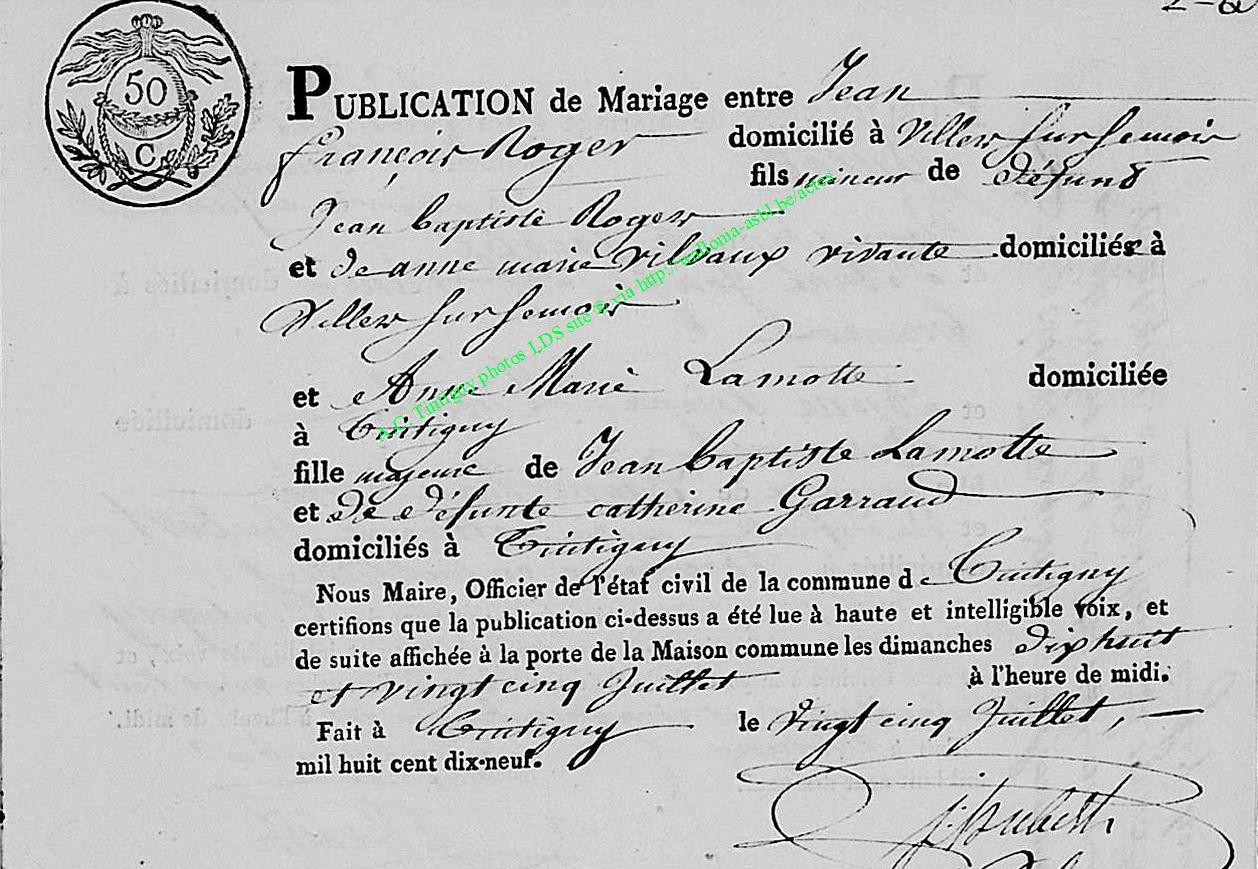 50
C
PUBLICATION de Mariage entre Jean
françois Roger domicilié à Viller sur Semois
fils mineur de défunt
Jean baptiste Roger
et de anne marie Vilvaux vivante domiciliée à
Viller sur Semois
et Anne Marie Lamotte domiciliée
à Tintigny
fille majeure de Jean baptiste Lamotte
et de défunte catherine Garraud
domiciliés à Tintigny
Nous Maire, Officier de l'état civil de la commune de Tintigny
certifions que la publication ci-dessus a été lue à haute et intelligible voix, et
de suite affichée à la porte de la Maison commune les dimanches dix huit
et vingt cinq Juillet à l'heure de midi.
Fait à Tintigny le vingt cinq Juillet,
mil huit cent dix-neuf.
A.C. Tintigny photos LDS site © via http://wallonia-asbl.be/actes